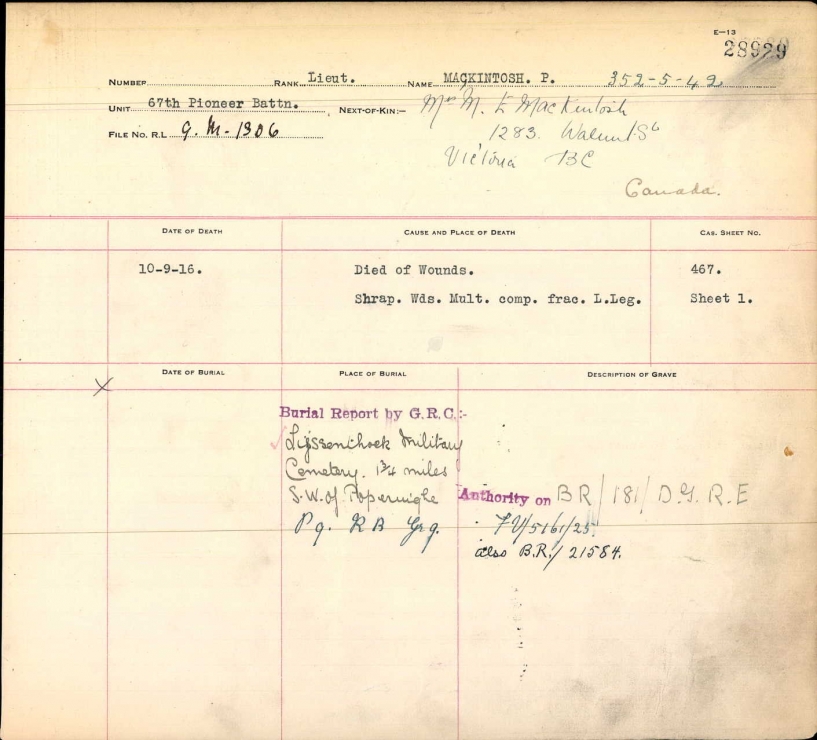 E—13
28929
NUMBER RANK Lieut. NAME MACKINTOSH. P. 352-5-42
UNIT 67th Pioneer Battn. NEXT-OF-KIN:— Mrs M. E MacKintosh
FILE No. R.L. G. M.-1306 1283. Walnut St
Victoria BC
Canada.
DATE OF DEATH CAUSE AND PLACE OF DEATH CAS. SHEET NO.
10-9-16. Died of Wounds. 467.
Shrap. Wds. Mult. comp. frac. L.Leg. Sheet 1.
DATE OF BURIAL PLACE OF BURIAL DESCRIPTION OF GRAVE
X
Burial Report by G.R.C.:-
Lijssenthoek Military
Cemetery. 1¾ miles
S.W. of Poperinghe Authority on BR/181/D.G.R.E
P9. R B Gr9. 7V/5161/25.
also B.R./21584.